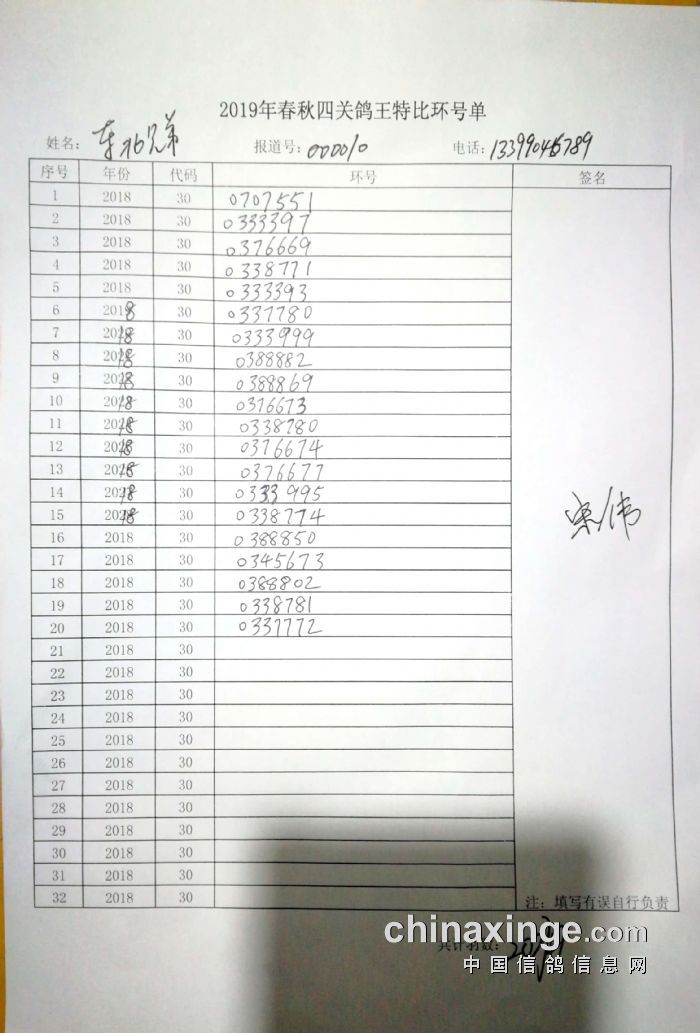 2019年春秋四关鸽王特比环号单
姓名: 东北兄弟 报道号: 000010 电话: 13399045789
序号 年份 代码 环号 签名
1 2018 30 0707551
2 2018 30 0333397
3 2018 30 0376669
4 2018 30 0338771
5 2018 30 0333393
6 2018 30 0337780
7 2018 30 0333999
8 2018 30 0388882
9 2018 30 0388869
10 2018 30 0376673
11 2018 30 0338780
12 2018 30 0376674
13 2018 30 0376677
14 2018 30 0333995
15 2018 30 0338774
16 2018 30 0388850
17 2018 30 0345673
18 2018 30 0388802
19 2018 30 0338781
20 2018 30 0337772
21 2018 30
22 2018 30
23 2018 30
24 2018 30
25 2018 30
26 2018 30
27 2018 30
28 2018 30
29 2018 30
30 2018 30
31 2018 30
32 2018 30
注: 填写有误自行负责
共计羽数: 20羽
chinaxinge.com
中国信鸽信息网